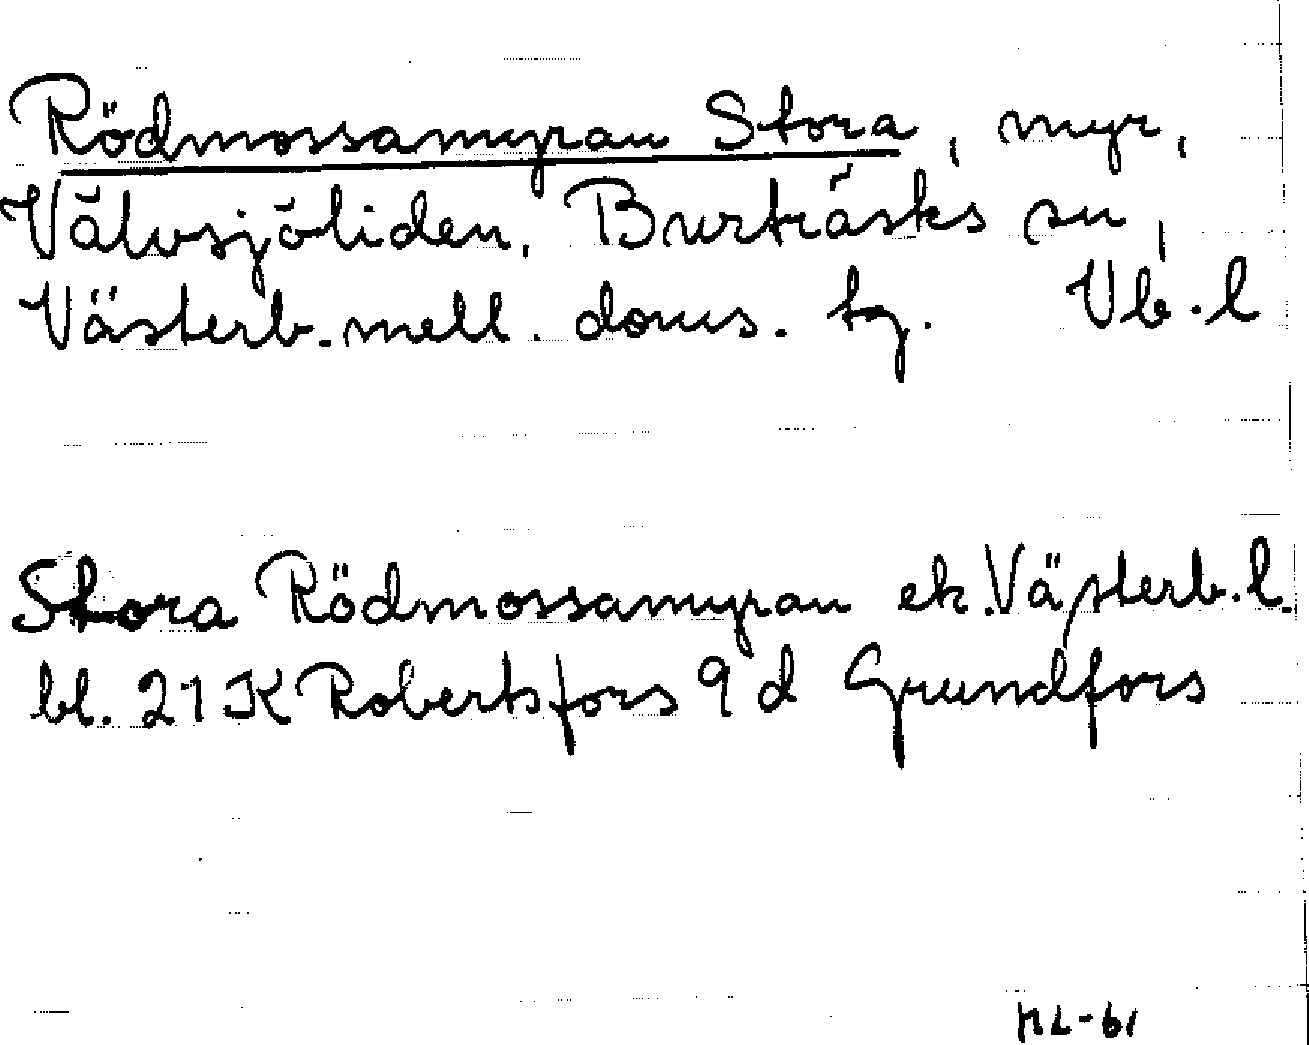 Rödmossamyran Stora, myr,
Välvsjöliden, Burträsks sn,
Västerb. mell. doms. tg. Vb. l
Stora Rödmossamyran ek. Västerb. l.
bl. 21 K Robertsfors 9 d Grundfors